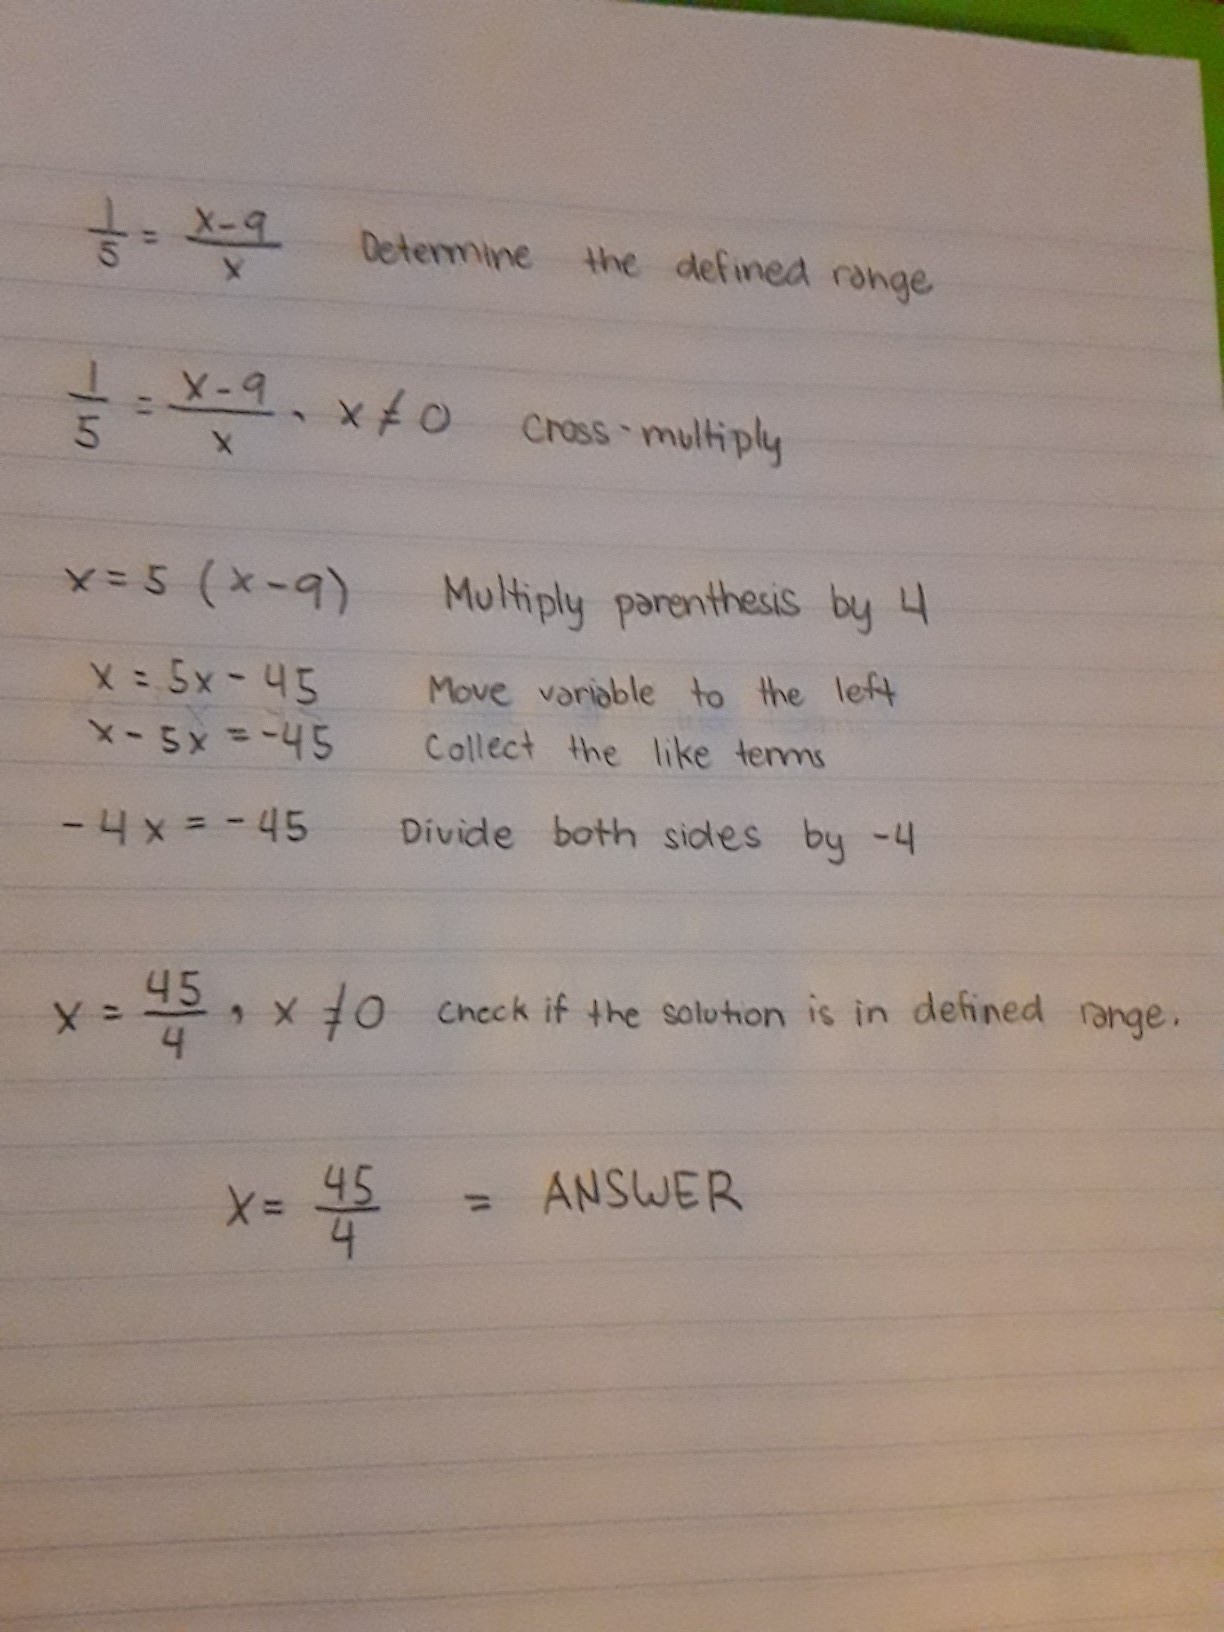 1/5 = x-9/x Determine the defined range
1/5 = x-9/x, x ≠ 0 cross-multiply
x = 5 (x-9) Multiply parenthesis by 4
x = 5x - 45 Move variable to the left
x - 5x = -45 Collect the like terms
-4x = -45 Divide both sides by -4
x = 45/4, x ≠ 0 check if the solution is in defined range.
x = 45/4 = ANSWER